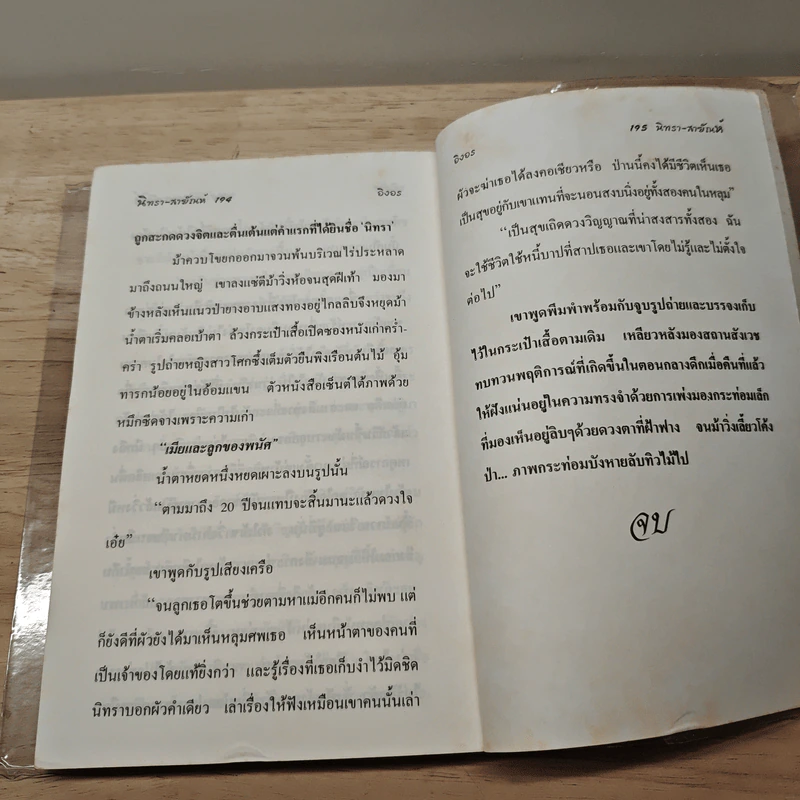 นิทรา-สายัณห์ 194
อิงอร
ถูกสะกดดวงจิตและตื่นเต้นแต่คำแรกที่ได้ยินชื่อ 'นิทรา'
ม้าควบไขยกออกมาจวนพ้นบริเวณไร่ประหลาด
มาถึงถนนใหญ่ เขาลงแซ่ตีม้าวิ่งห้อจนสุดฝีเท้า มองมา
ข้างหลังเห็นแนวป่ายางอาบแสงทองอยู่ไกลลิบจึงหยุดม้า
น้ำตาเริ่มคลอเบ้าตา ล้วงกระเป๋าเสื้อเปิดซองหนังเก่าคร่ำ-
คร่า รูปถ่ายหญิงสาวโศกซึ้งเต็มตัวยืนพิงเรือนต้นไม้ อุ้ม
ทารกน้อยอยู่ในอ้อมแขน ตัวหนังสือเซ็นต์ใต้ภาพด้วย
หมึกซีดจางเพราะความเก่า
“เมียและลูกของพนัศ”
น้ำตาหยดหนึ่งหยดเผาะลงบนรูปนั้น
“ตามมาถึง 20 ปีจนแทบจะสิ้นมานะแล้วดวงใจ
เอ๋ย”
เขาพูดกับรูปเสียงเครือ
“จนลูกเธอโตขึ้นช่วยตามหาแม่อีกคนก็ไม่พบ แต่
ก็ยังดีที่ผัวยังได้มาเห็นหลุมศพเธอ เห็นหน้าตาของคนที่
เป็นเจ้าของโดยแท้ยิ่งกว่า และรู้เรื่องที่เธอเก็บงำไว้มิดชิด
นิทราบอกผัวคำเดียว เล่าเรื่องให้ฟังเหมือนเขาคนนั้นเล่า
195 นิทรา-สายัณห์
อิงอร
ผัวจะฆ่าเธอได้ลงคอเชียวหรือ ป่านนี้คงได้มีชีวิตเห็นเธอ
เป็นสุขอยู่กับเขาแทนที่จะนอนสงบนิ่งอยู่ทั้งสองคนในหลุม”
“เป็นสุขเถิดดวงวิญญาณที่น่าสงสารทั้งสอง ฉัน
จะใช้ชีวิตใช้หนี้บาปที่สาปเธอและเขาโดยไม่รู้และไม่ตั้งใจ
ต่อไป”
เขาพูดพึมพำพร้อมกับจูบรูปถ่ายและบรรจงเก็บ
ไว้ในกระเป๋าเสื้อตามเดิม เหลียวหลังมองสถานสังเวช
ทบทวนพฤติการณ์ที่เกิดขึ้นในตอนกลางดึกเมื่อคืนที่แล้ว
ให้ฝังแน่นอยู่ในความทรงจำด้วยการเพ่งมองกระท่อมเล็ก
ที่มองเห็นอยู่ลิบๆด้วยดวงตาที่ฝ้าฟาง จนม้าวิ่งเลี้ยวโค้ง
ป่า... ภาพกระท่อมบังหายลับทิวไม้ไป
จบ